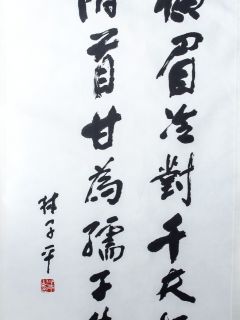 橫眉冷對千夫指
俯首甘為孺子牛
林子平